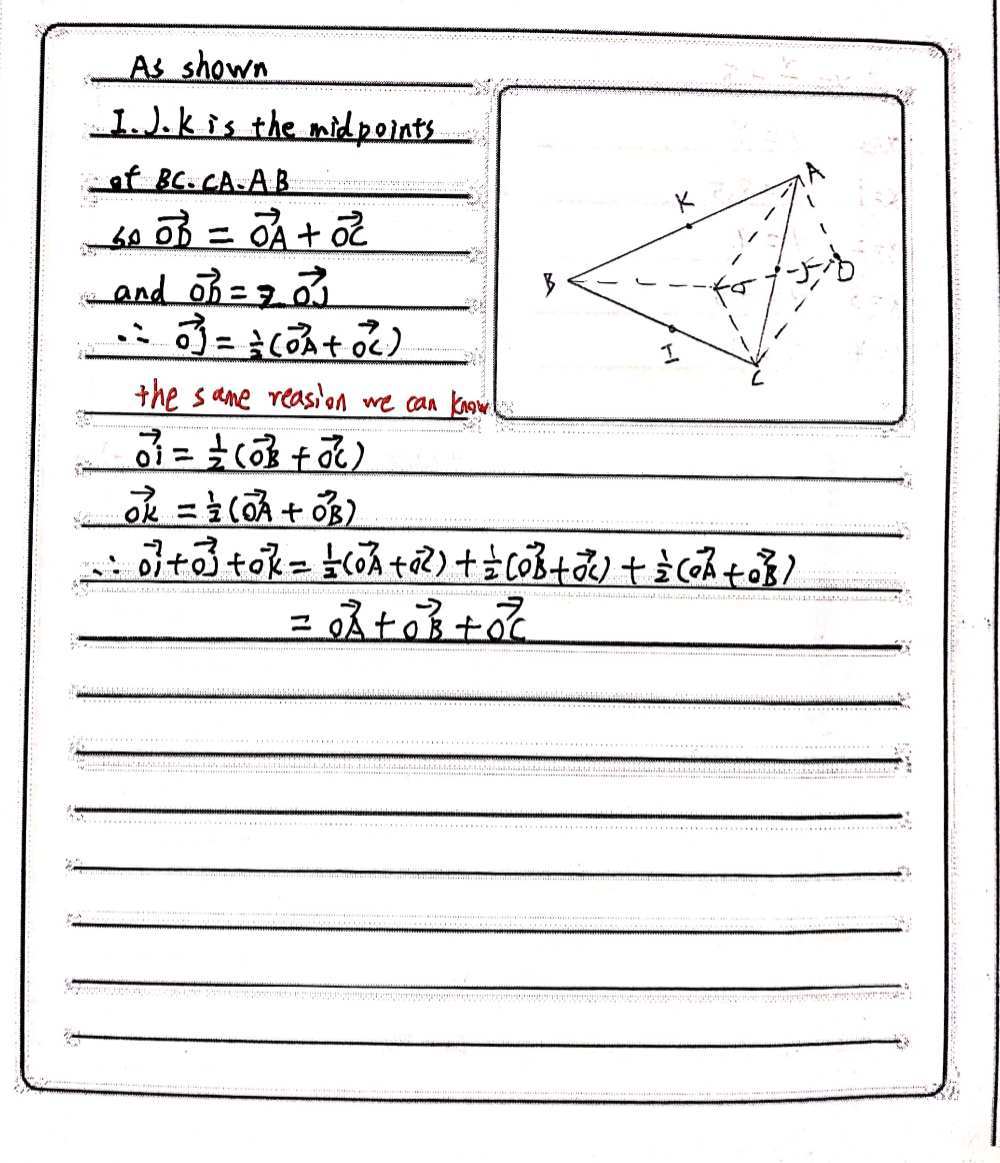 As shown
I.J.K is the midpoints
of BC.CA.AB
so \vec{OD} = \vec{OA} + \vec{OC}
and \vec{OD} = 2 \vec{OJ}
∴ \vec{OJ} = \frac{1}{2}(\vec{OA} + \vec{OC})
the same reasion we can know
\vec{oi} = \frac{1}{2}(\vec{OB} + \vec{OC})
\vec{OK} = \frac{1}{2}(\vec{OA} + \vec{OB})
∴ \vec{oi} + \vec{OJ} + \vec{OK} = \frac{1}{2}(\vec{OA} + \vec{OC}) + \frac{1}{2}(\vec{OB} + \vec{OC}) + \frac{1}{2}(\vec{OA} + \vec{OB})
= \vec{OA} + \vec{OB} + \vec{OC}
A
K
B
O
J
D
I
C